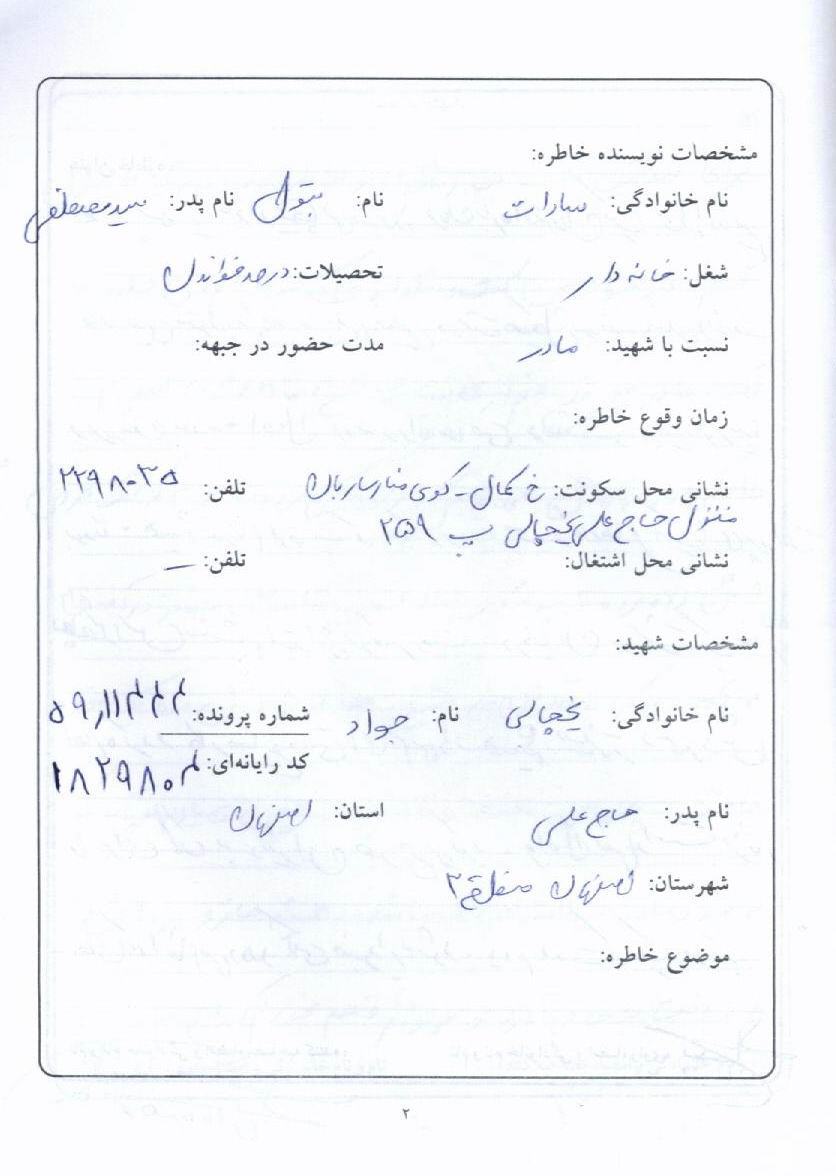 مشخصات نویسنده خاطره:
نام خانوادگی: سادات نام: بتول نام پدر: سیدمصطفی
شغل: خانه دار تحصیلات: درحد خواندن
نسبت با شهید: مادر مدت حضور در جبهه:
زمان وقوع خاطره:
نشانی محل سکونت: خ کمال - کوی منار ساربان تلفن: ۲۲۹۸۰۳۵
منزل حاج علی یخچالی پ ۲۵۹
نشانی محل اشتغال: تلفن: –
مشخصات شهید:
نام خانوادگی: یخچالی نام: جواد شماره پرونده:
کد رایانه‌ای:
نام پدر: حاج علی استان: اصفهان
شهرستان: اصفهان منطقه ۲
موضوع خاطره:
۲